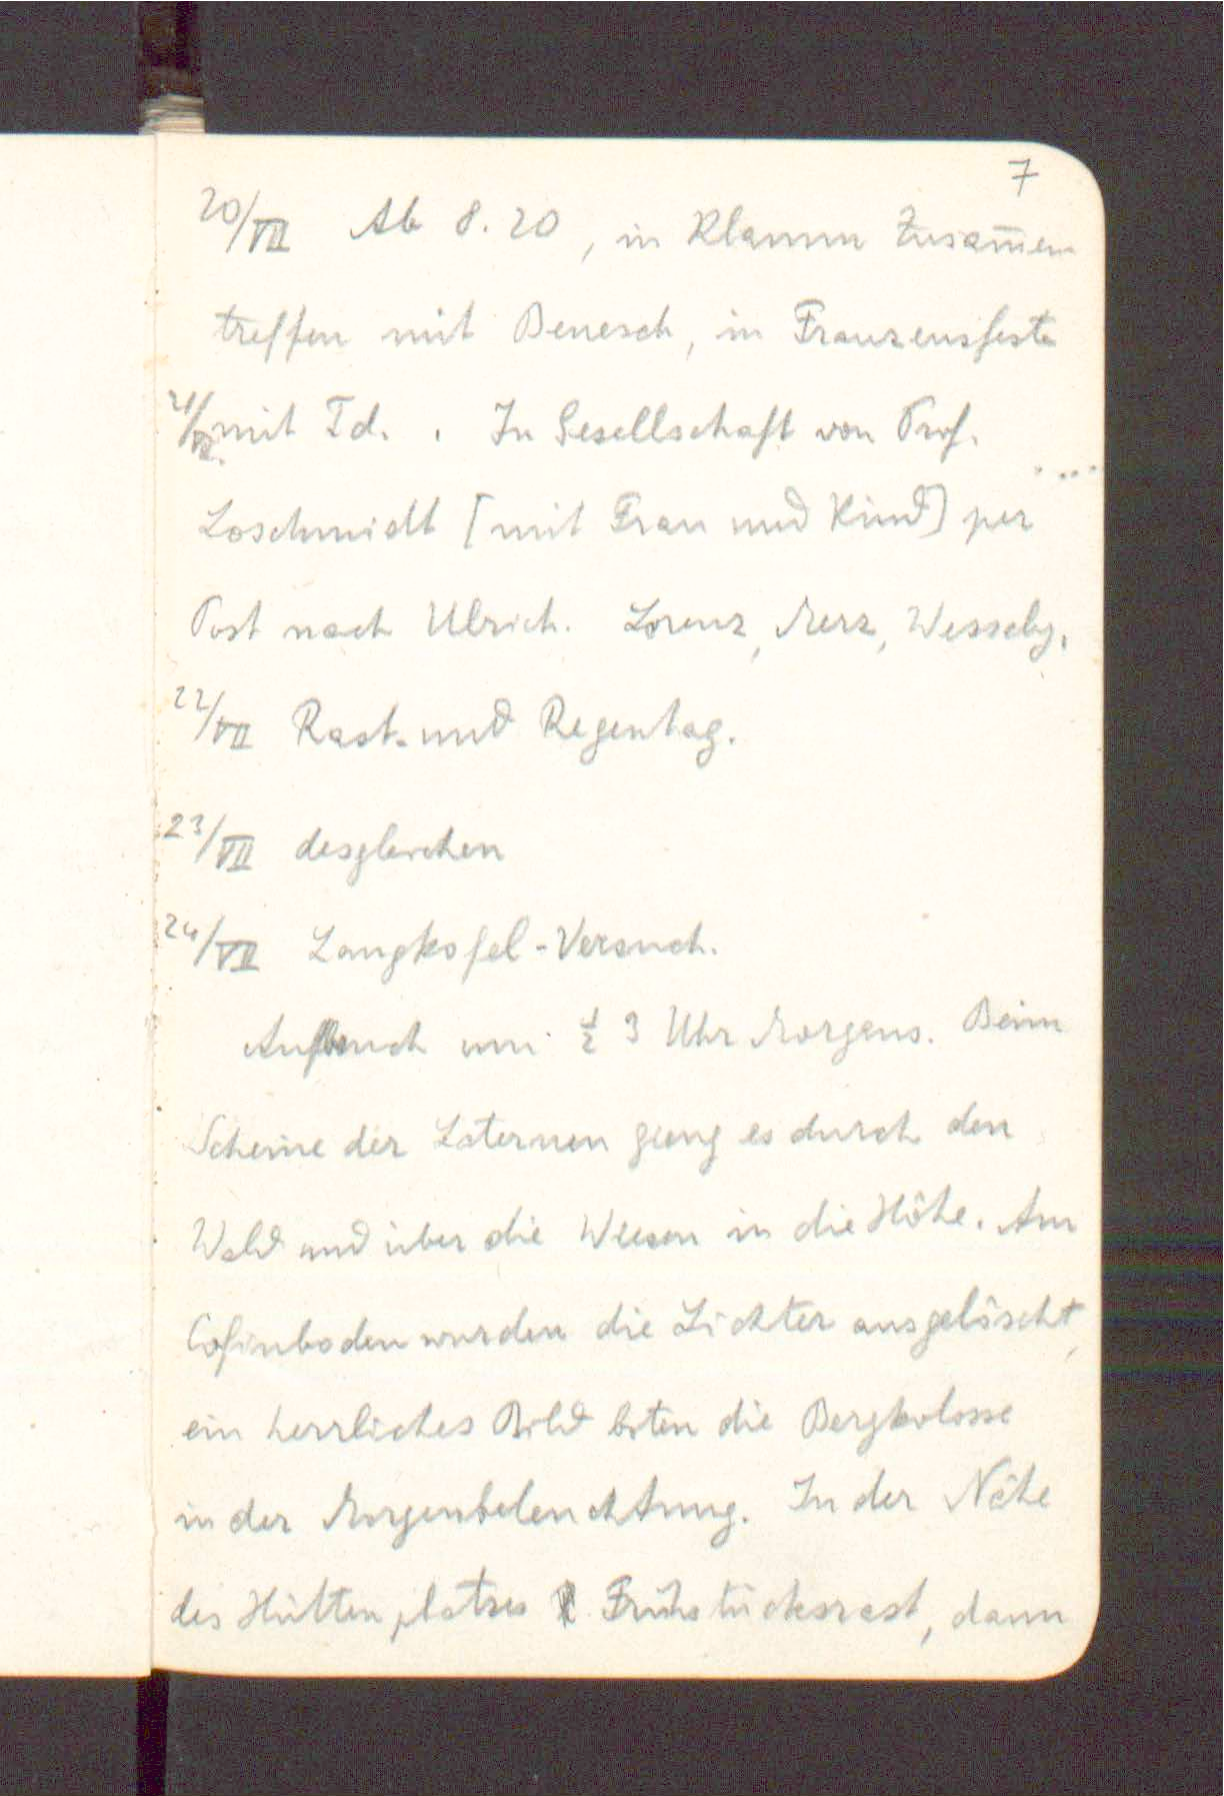 7
20/VII Ab 8.20, in Klamm Zusam̅en
treffen mit Benesch, in Franzensfeste
21/VII. mit Td. . In Gesellschaft von Prof.
Loschmidt [mit Frau und Kind] per
Post nach Ulrich. Lorenz, Merz, Wessely.
22/VII Rast- und Regentag.
23/VII desgleichen
24/VII Langkofel-Versuch.
Aufbruch um ½ 3 Uhr Morgens. Beim
Scheine der Laternen gieng es durch den
Wald und über die Wiesen in die Höhe. Am
Cofinboden wurden die Lichter ausgelöscht,
ein herrliches Bild boten die Bergkolosse
in der Morgenbeleuchtung. In der Nähe
des Hüttenplatzes Frühstücksrast, dann